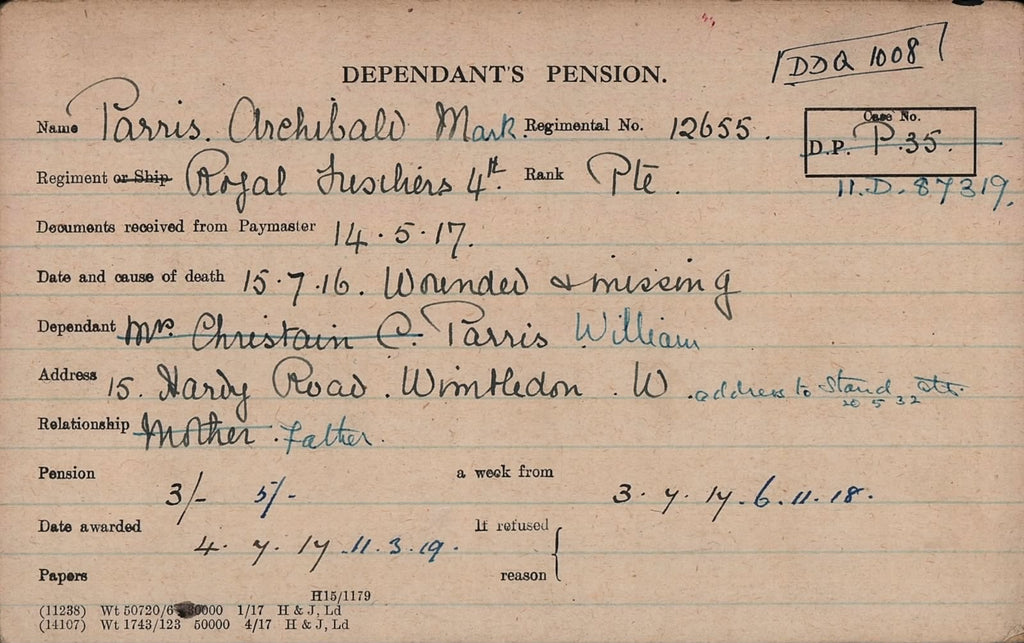 DDQ 1008
DEPENDANT'S PENSION.
Name Parris. Archibald Mark Regimental No. 12655.
Case No.
D.P. P.35.
Regiment or Ship Royal Fusiliers 4th. Rank Pte.
11.D.87319.
Documents received from Paymaster 14.5.17.
Date and cause of death 15.7.16. Wounded & missing
Dependant Mrs. Christain C. Parris William
Address 15. Hardy Road. Wimbledon. W. address to Stand
20 5 32
Relationship Mother. Father.
Pension 3/- 5/- a week from 3.7.17. 6.11.18.
Date awarded 4.7.17 11.3.19. If refused
Papers reason
H15/1179
(11238) Wt 50720/6 0000 1/17 H & J, Ld
(14107) Wt 1743/123 50000 4/17 H & J, Ld